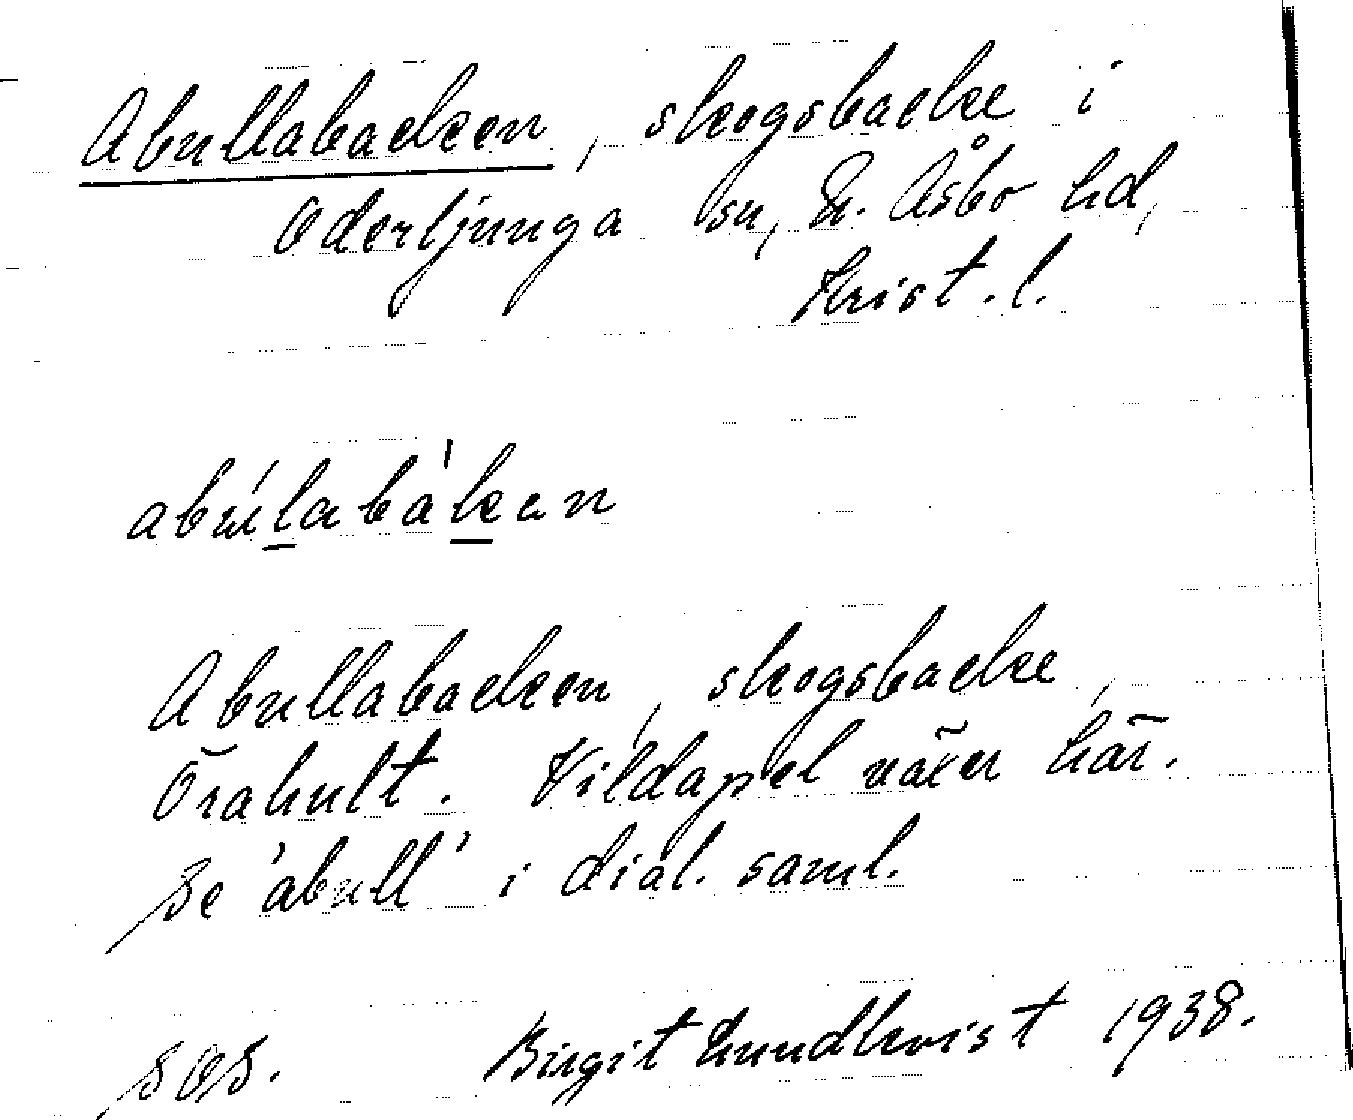 Abullabacken, skogsbacke i
Oderljunga sn, N. Åsbo hd,
Krist. l.
abúlabàkan
Abullabacken, skogsbacke,
Örahult. Vildapel växer här.
Se 'abull' i dial. saml.
SOS. Birgit Lundkvist 1938.